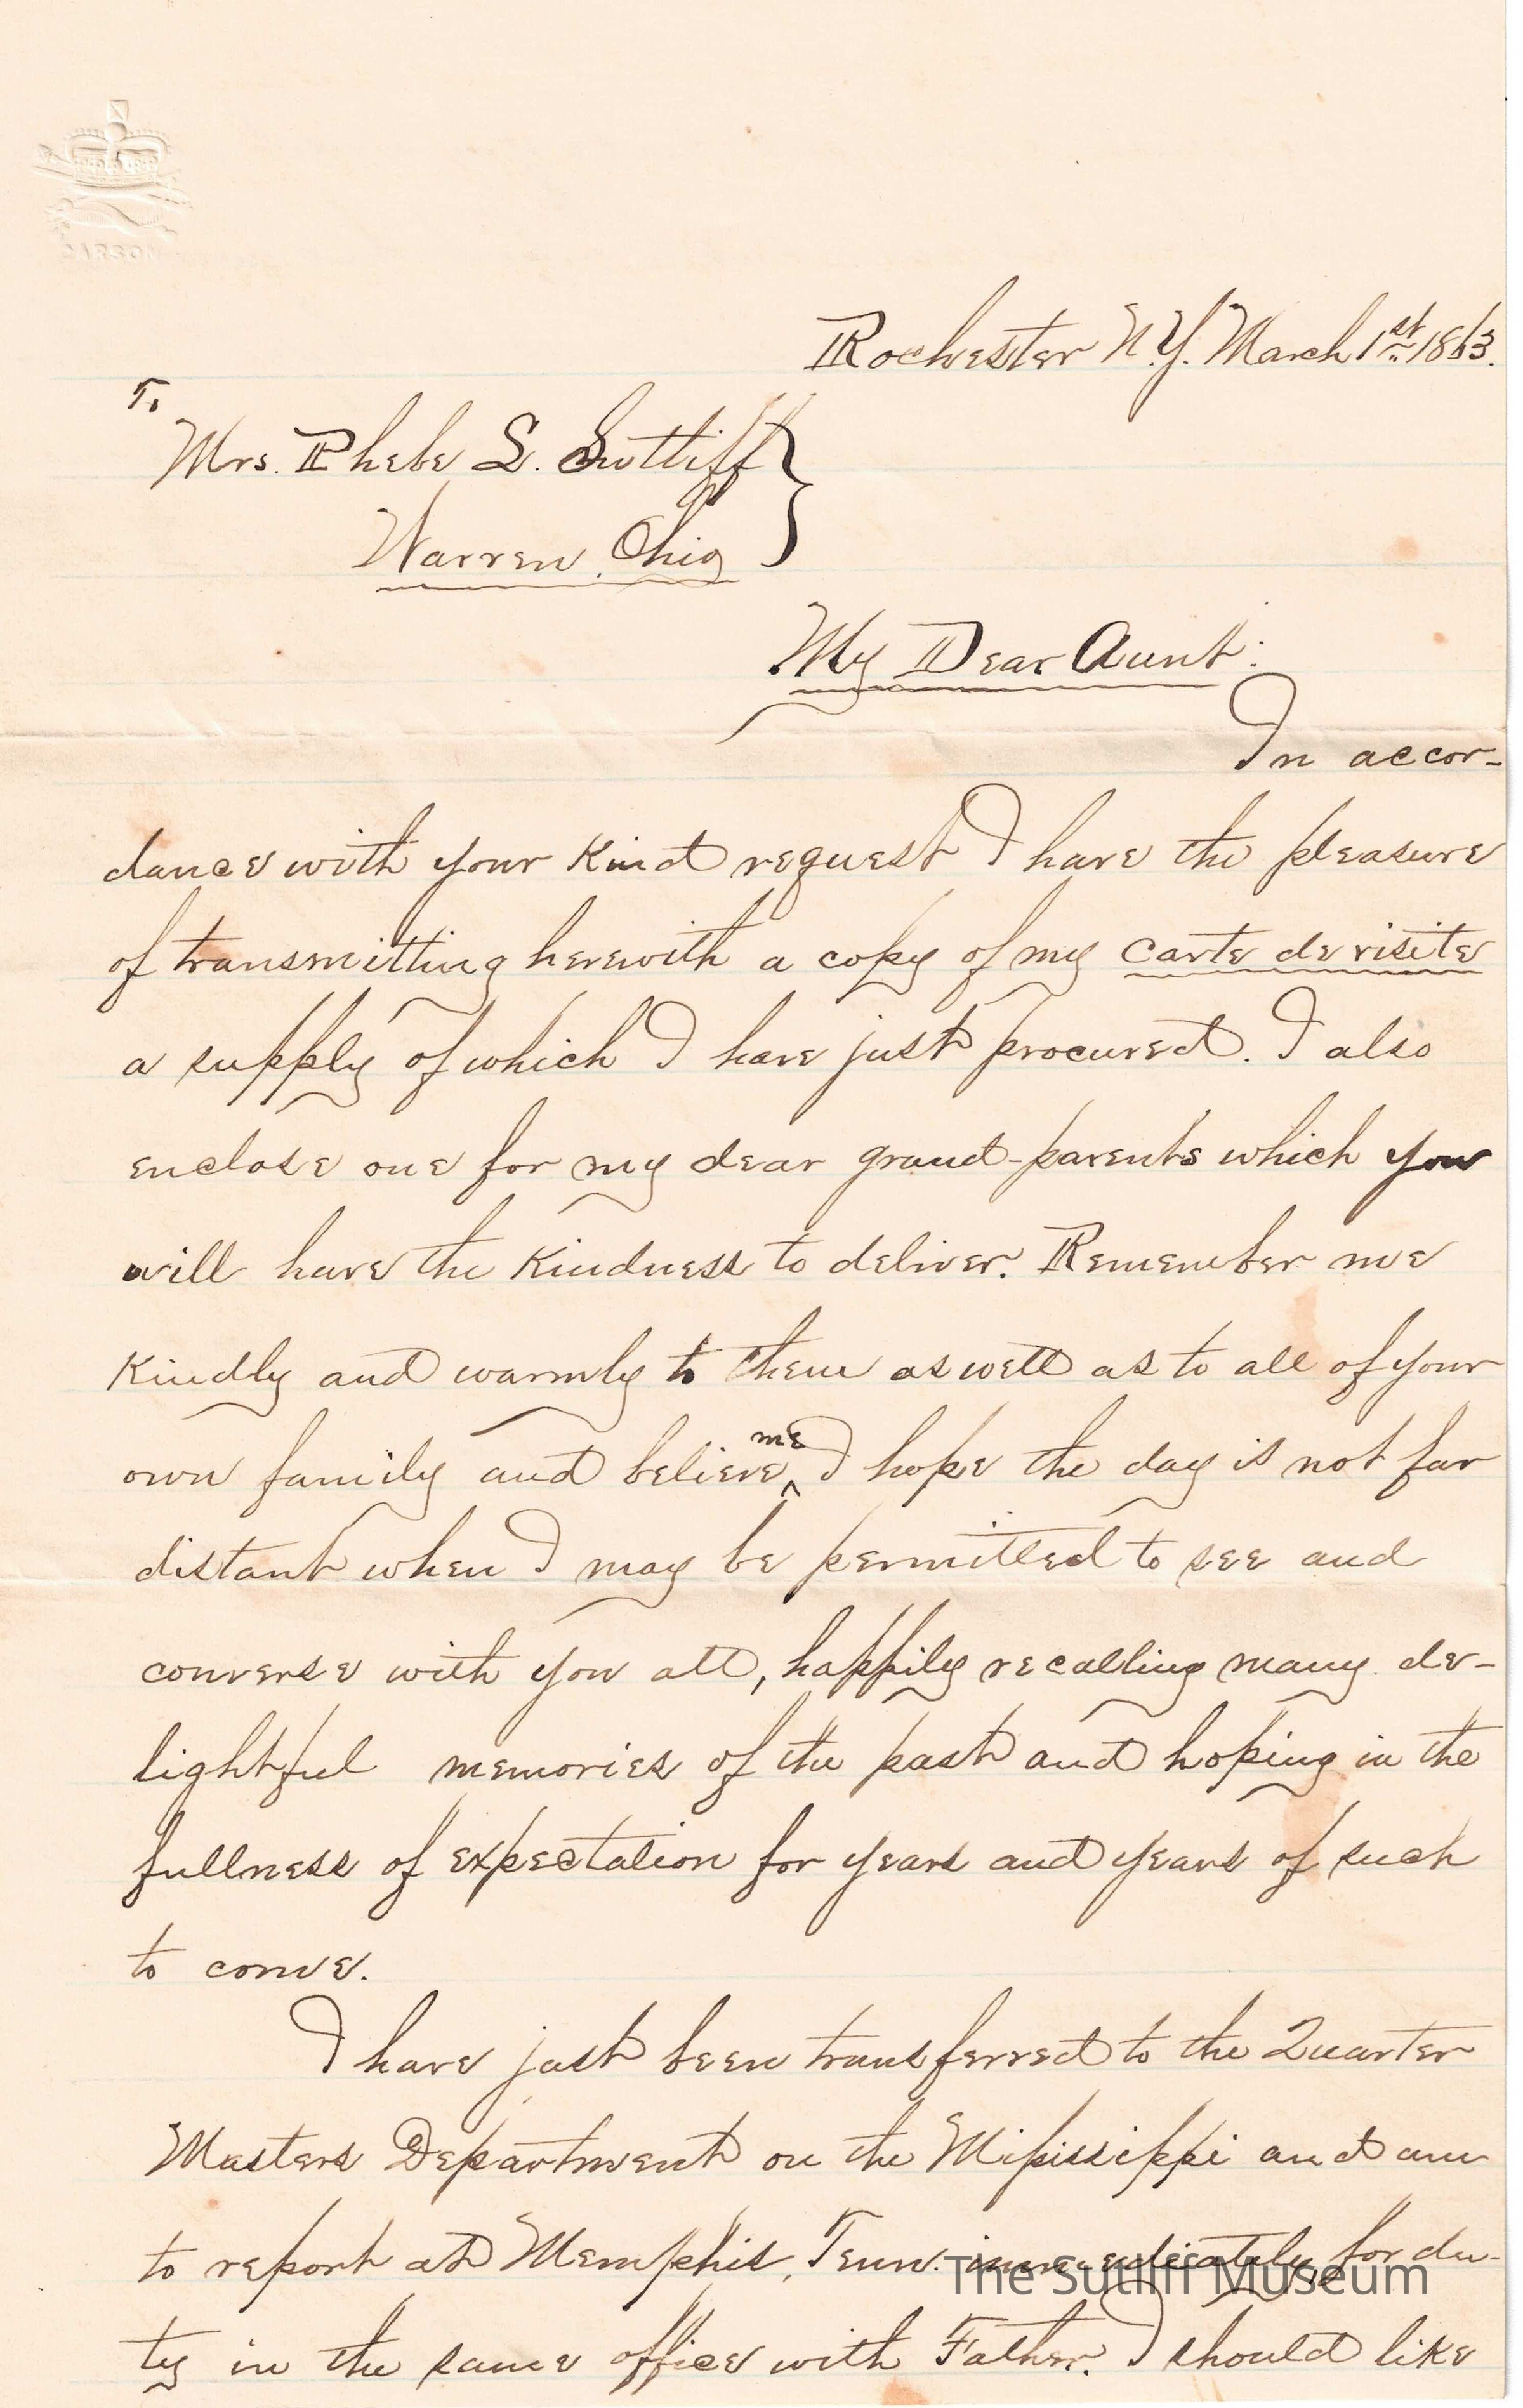 CARSON
Rochester N.Y. March 1st 1863.
To
Mrs. Phebe L. Sutliff
Warren, Ohio
My Dear Aunt:
In accor-
dance with your kind request I have the pleasure
of transmitting herewith a copy of my carte de visite
a supply of which I have just procured. I also
enclose one for my dear grand-parents which you
will have the kindness to deliver. Remember me
kindly and warmly to them as well as to all of your
own family and believe me I hope the day is not far
distant when I may be permitted to see and
converse with you all, happily recalling many de-
lightful memories of the past and hoping in the
fullness of expectation for years and years of such
to come.
I have just been transferred to the Quarter
Masters Department on the Mississippi and am
to report at Memphis, Tenn. immediately for du-
ty in the same office with Father. I should like
The Sutliff Museum